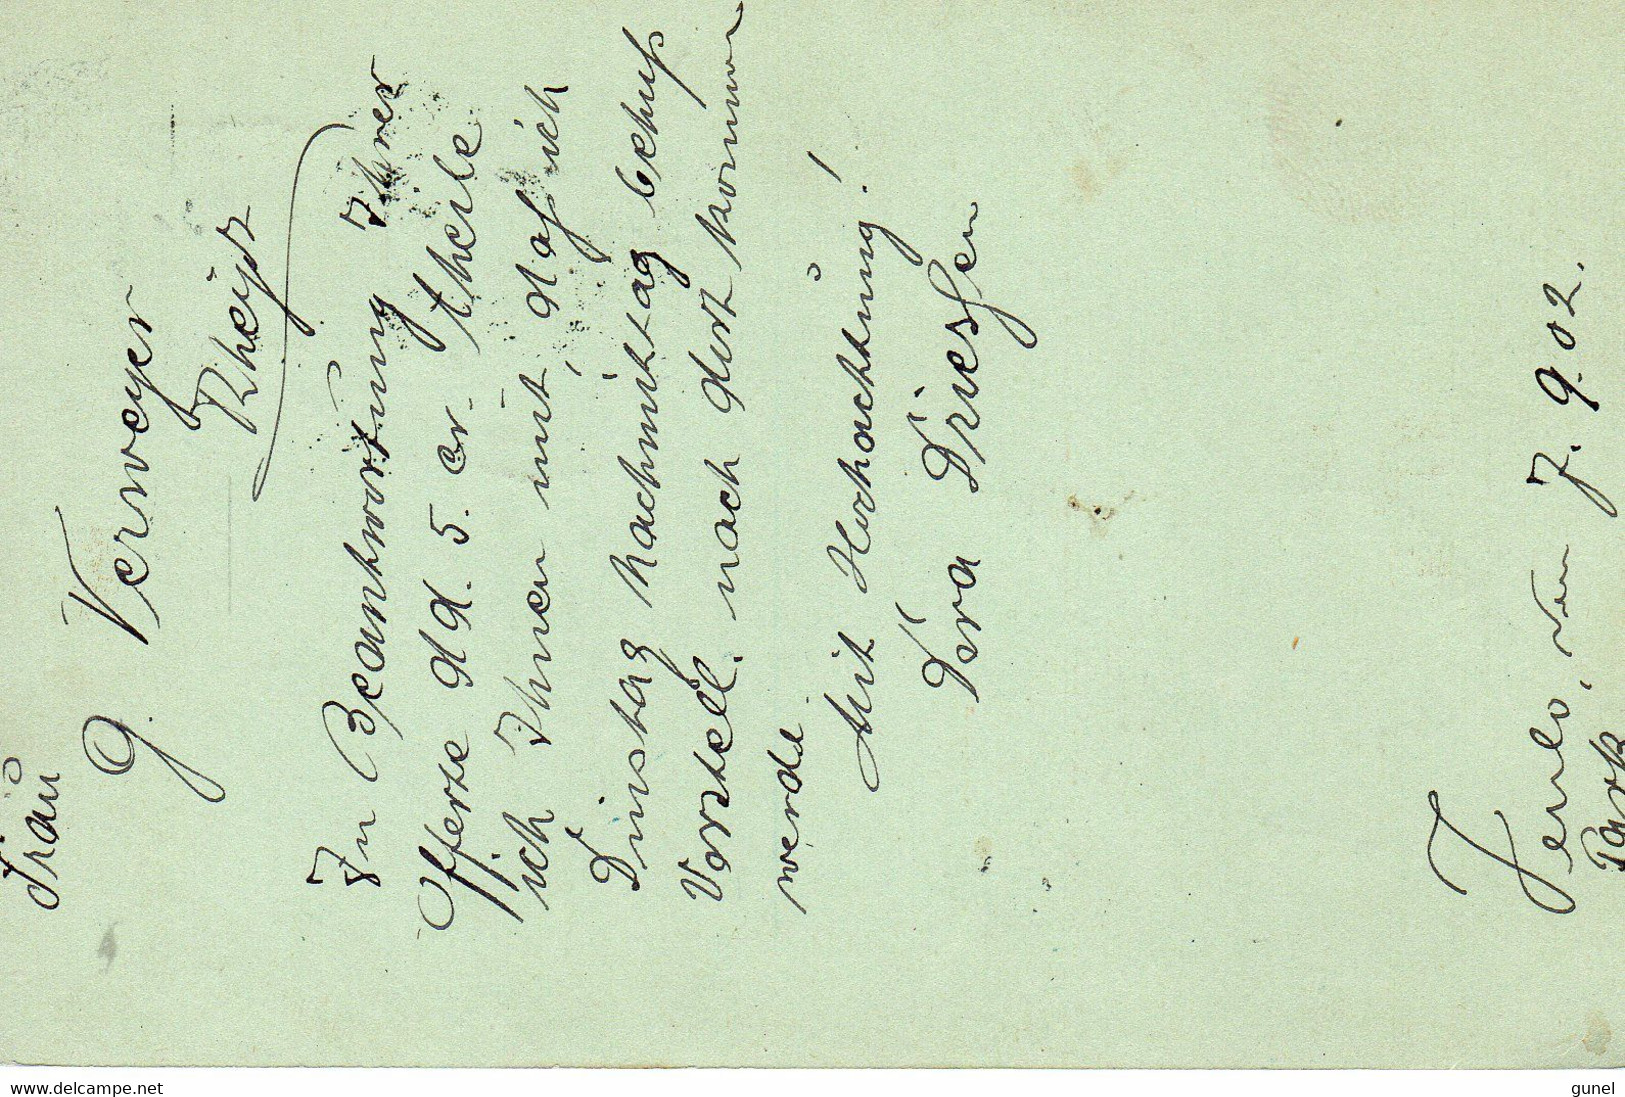 Frau
G. Verweyer
Rheydt
In Beantwortung Ihrer
Offerte dd. 5. cr. theile
ich Ihnen mit, daß ich
Dinstag Nachmittag behufs
Vorstell. nach dort kommen
werde.
Mit Hochachtung!
Dora Driessen
Venlo, den 7. 9. 02.
Park
www.delcampe.net
gunel